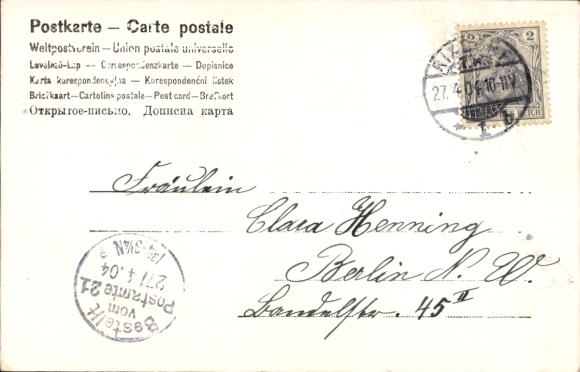 Postkarte — Carte postale
Weltpostverein — Union postale universelle
Levelező-Lap — Correspondenzkarte — Dopisnice
Karta korespondencyjna — Korespondenční lístek
Briefkaart — Cartolina postale — Post card — Brefkort
Открытое письмо. Дописна карта
2 2
REICH
27.4.04. 10-11V
* 1 b
Fräulein
Clara Henning
Berlin N. W.
Bandelstr. 45 II
Bestellt
vom
Postamte 21
27/4.04